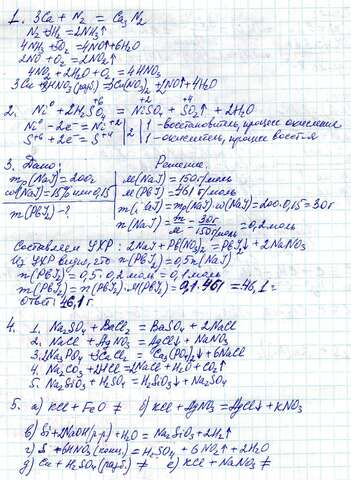 1. 3Ca + N₂ = Ca₃N₂
N₂ + 3H₂ = 2NH₃↑
4NH₃ + 5O₂ = 4NO↑ + 6H₂O
2NO + O₂ = 2NO₂↑
4NO₂ + 2H₂O + O₂ = 4HNO₃
3Cu + 8HNO₃(разб.) = 3Cu(NO₃)₂ + 2NO↑ + 4H₂O
2. Ni⁰ + 2H₂S⁺⁶O₄ = Ni⁺²SO₄ + S⁺⁴O₂↑ + 2H₂O
Ni⁰ - 2e⁻ = Ni⁺² | 2 | 1 - восстановитель, процесс окисления
S⁺⁶ + 2e⁻ = S⁺⁴ | 1 - окислитель, процесс восст-я
3. Дано: Решение.
mp(NaI) = 200г M(NaI) = 150г/моль
ω(NaI) = 15% или 0,15 M(PbI₂) = 461 г/моль
m(PbI₂) - ? m(NaI) = mp(NaI)·ω(NaI) = 200·0,15 = 30г
n(NaI) = m/M = 30г/150г/моль = 0,2 моль
Составляем УХР: 2NaI + Pb(NO₃)₂ = PbI₂↓ + 2NaNO₃
Из УХР видно, что n(PbI₂) = 0,5n(NaI)
n(PbI₂) = 0,5·0,2 моль = 0,1 моль
m(PbI₂) = n(PbI₂)·M(PbI₂) = 0,1·461 = 46,1г
Ответ: 46,1 г
4. 1. Na₂SO₄ + BaCl₂ = BaSO₄ + 2NaCl
2. NaCl + AgNO₃ = AgCl↓ + NaNO₃
3. 2Na₃PO₄ + 3CaCl₂ = Ca₃(PO₄)₂↓ + 6NaCl
4. Na₂CO₃ + 2HCl = 2NaCl + H₂O + CO₂↑
5. Na₂SiO₃ + H₂SO₄ = H₂SiO₃↓ + Na₂SO₄
5. а) KCl + FeO ≠ б) KCl + AgNO₃ = AgCl↓ + KNO₃
в) Si + 2NaOH(р.р) + H₂O = Na₂SiO₃ + 2H₂↑
г) S + 6HNO₃(конц.) = H₂SO₄ + 6NO₂↑ + 2H₂O
д) Cu + H₂SO₄(разб.) ≠ е) KCl + NaNO₃ ≠